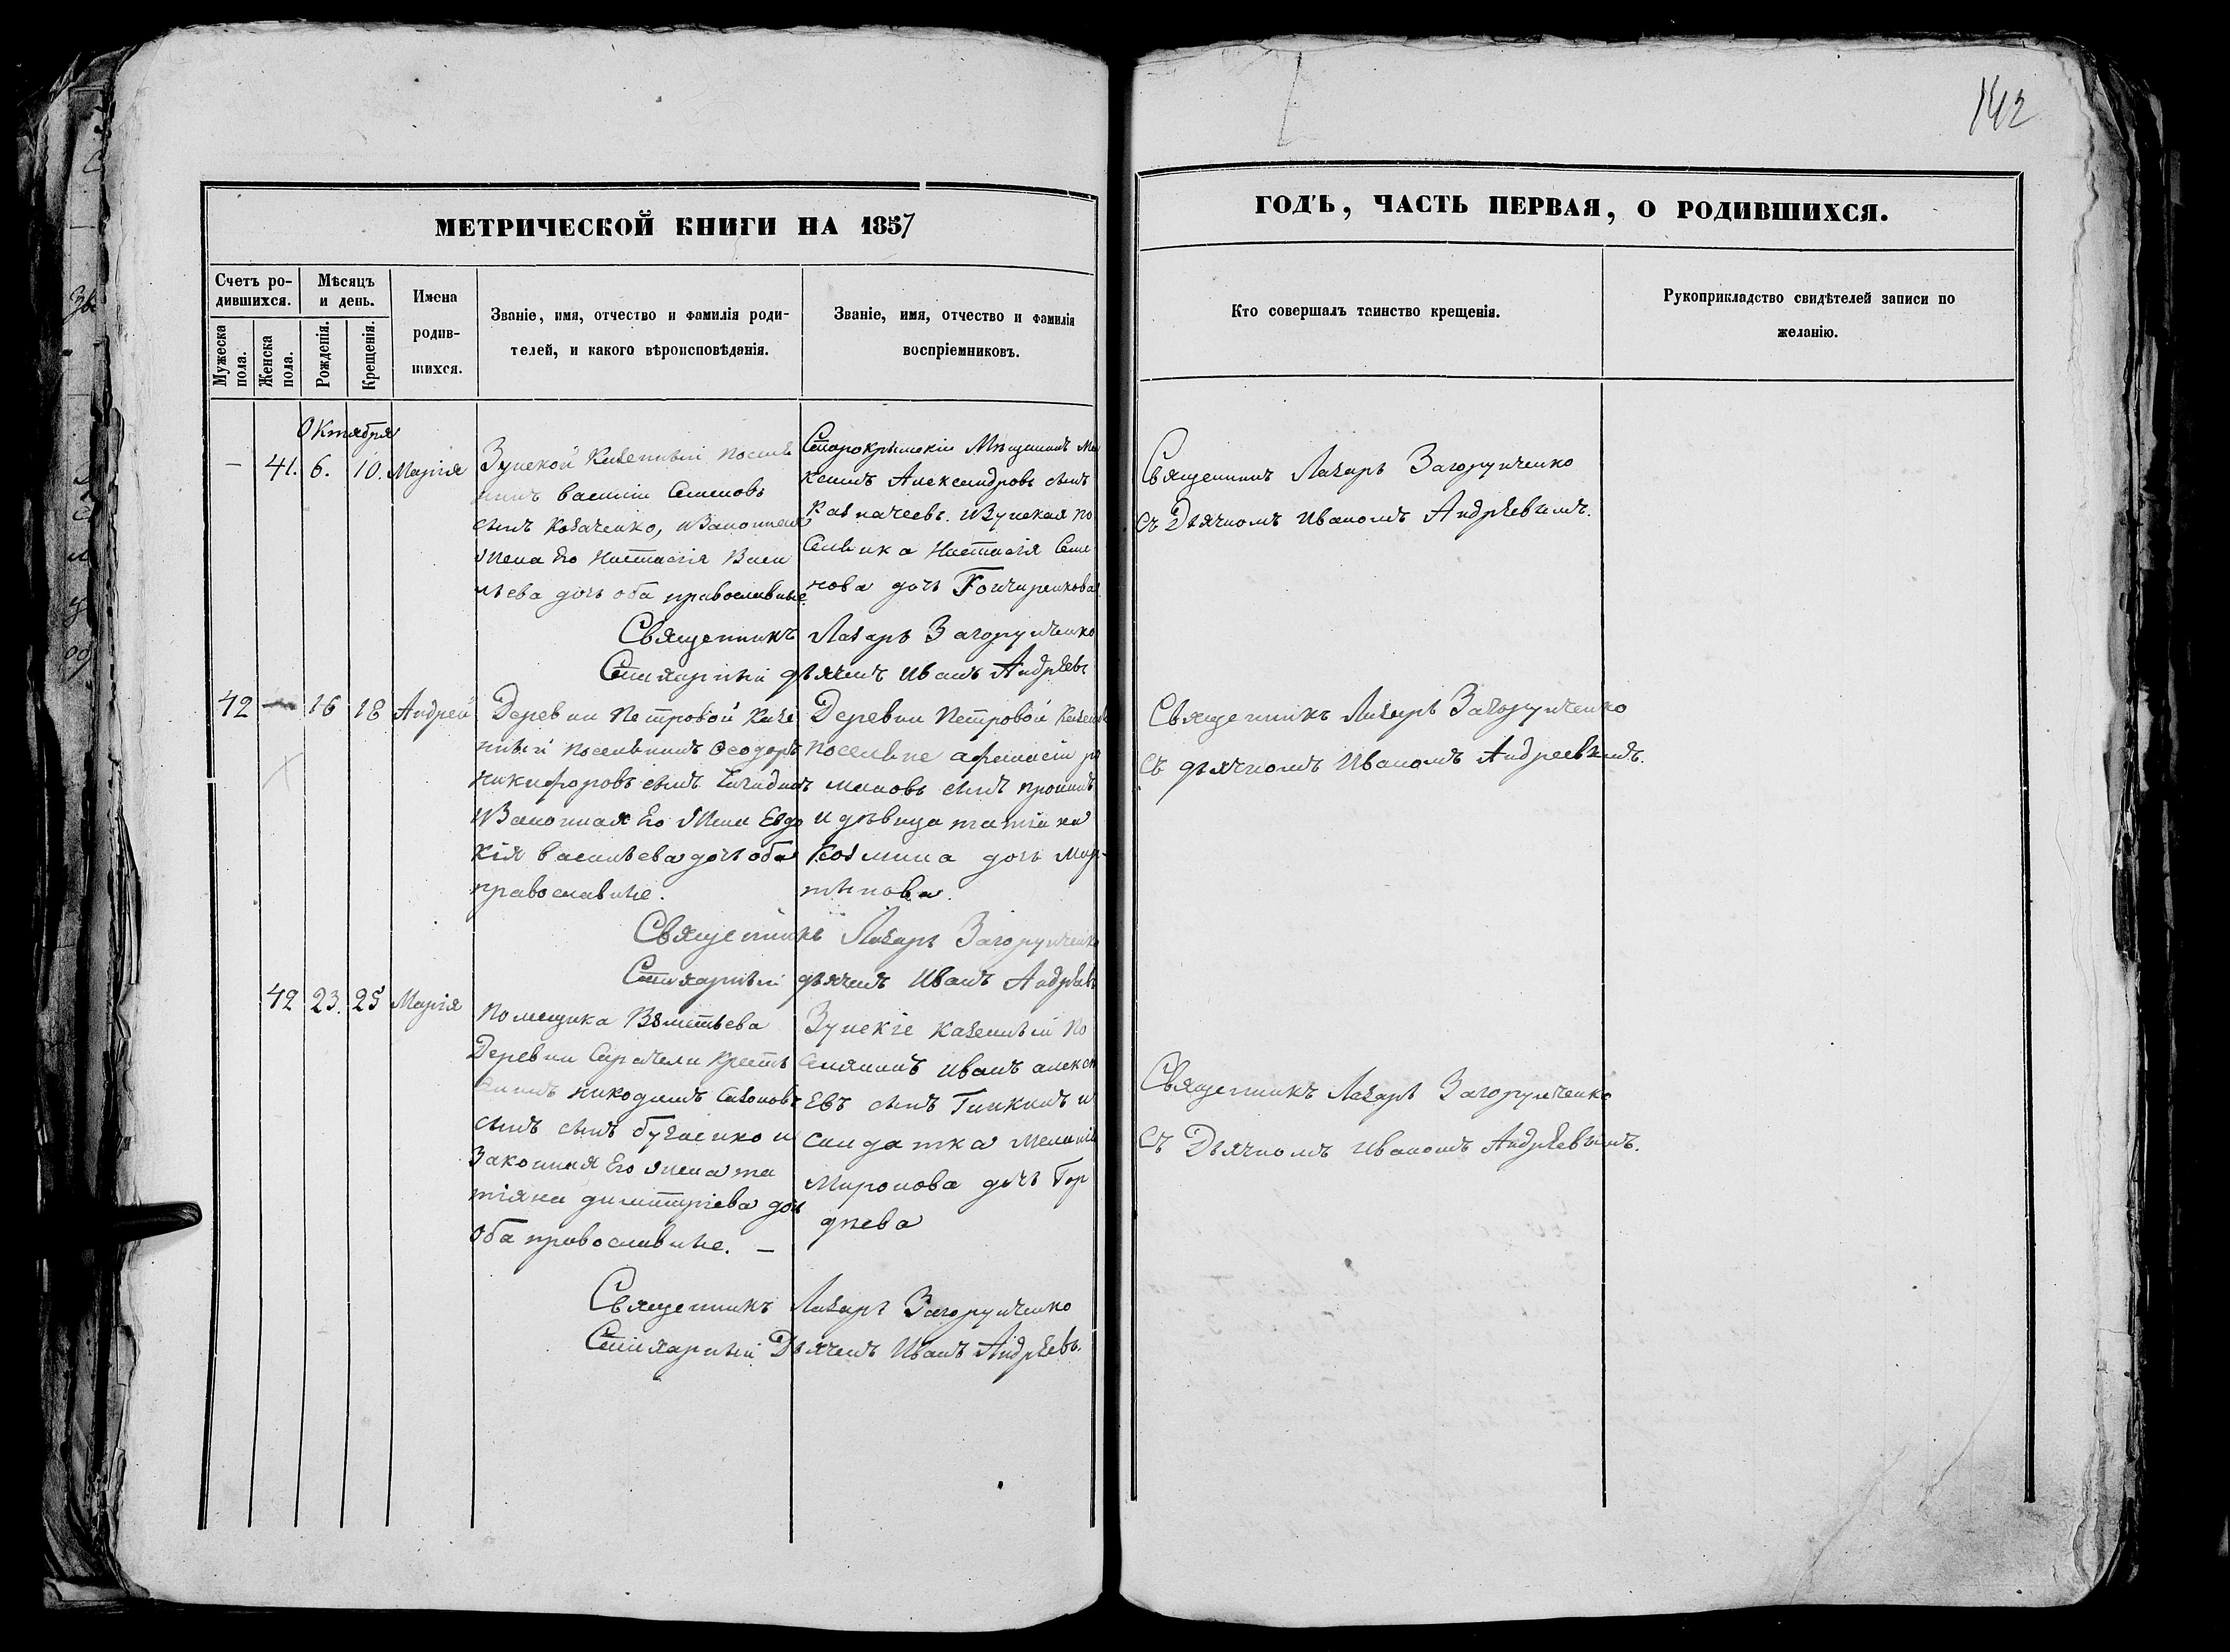 142
МЕТРИЧЕСКОЙ КНИГИ НА 1857
ГОДЪ, ЧАСТЬ ПЕРВАЯ, О РОДИВШИХСЯ.
Счетъ ро-
дившихся.
Мужеска
пола.
Женска
пола.
Мѣсяцъ
и день.
Рожденія.
Крещенія.
Имена
родив-
шихся.
Званіе, имя, отчество и фамилія роди-
телей, и какого вѣроисповѣданія.
Званіе, имя, отчество и фамилія
воспріемниковъ.
Кто совершалъ таинство крещенія.
Рукоприкладство свидѣтелей записи по
желанію.
Октября
— 41. 6. 10. Марія
Зуйской Казенный поселя
нинъ Василій Семеновъ
сынъ Козаченко, и Законная
Жена Его Настасія Васи
льева дочь оба православные.
Старокрымскій Мѣщанинъ Ма
ксимъ Александровъ сынъ
Казначеевъ. и Зуйская по
Селянка Настасія Семе
нова дочь Гончаренкова.
Священникъ Лазарь Загоруйченко
съ Дьячкомъ Иваномъ Андрѣевымъ.
Священникъ Лазарь Загоруйченко
Стихарный дьячекъ Иванъ Андрѣевъ
42 — 16 18 Андрей
Деревни Петровой Казе
нный поселянинъ Ѳеодоръ
Никифоровъ сынъ
и Законная Его Жена Евдо
кія Васильева дочь оба
православные.
Деревни Петровой Казенный
поселяне Афанасій Ро
мановъ сынъ Пронинъ
и дѣвица Татіана
Козмина дочь Мар-
тынова.
Священникъ Лазарь Загоруйченко
съ дьячкомъ Иваномъ Андреевымъ.
Священникъ Лазарь Загоруйченко
Стихарный дьячекъ Иванъ Андрѣевъ
42 23. 25 Марія
Помещика
Деревни Сарачели Кресть
янинъ Никодимъ Сазоновъ
сынъ сынъ и
Законная Его Жена Та
тіяна Димитріева дочь
Оба православные. —
Зуйскіе Казенный По
Селянинъ Иванъ Алексѣ
Евъ сынъ и
Солдатка Меланія
Миронова дочь Гор
дѣева
Священникъ Лазарь Загоруйченко
Съ Дьячкомъ Иваномъ Андрѣевымъ.
Священникъ Лазарь Загоруйченко
Стихарный Дьячекъ Иванъ Андрѣевъ.